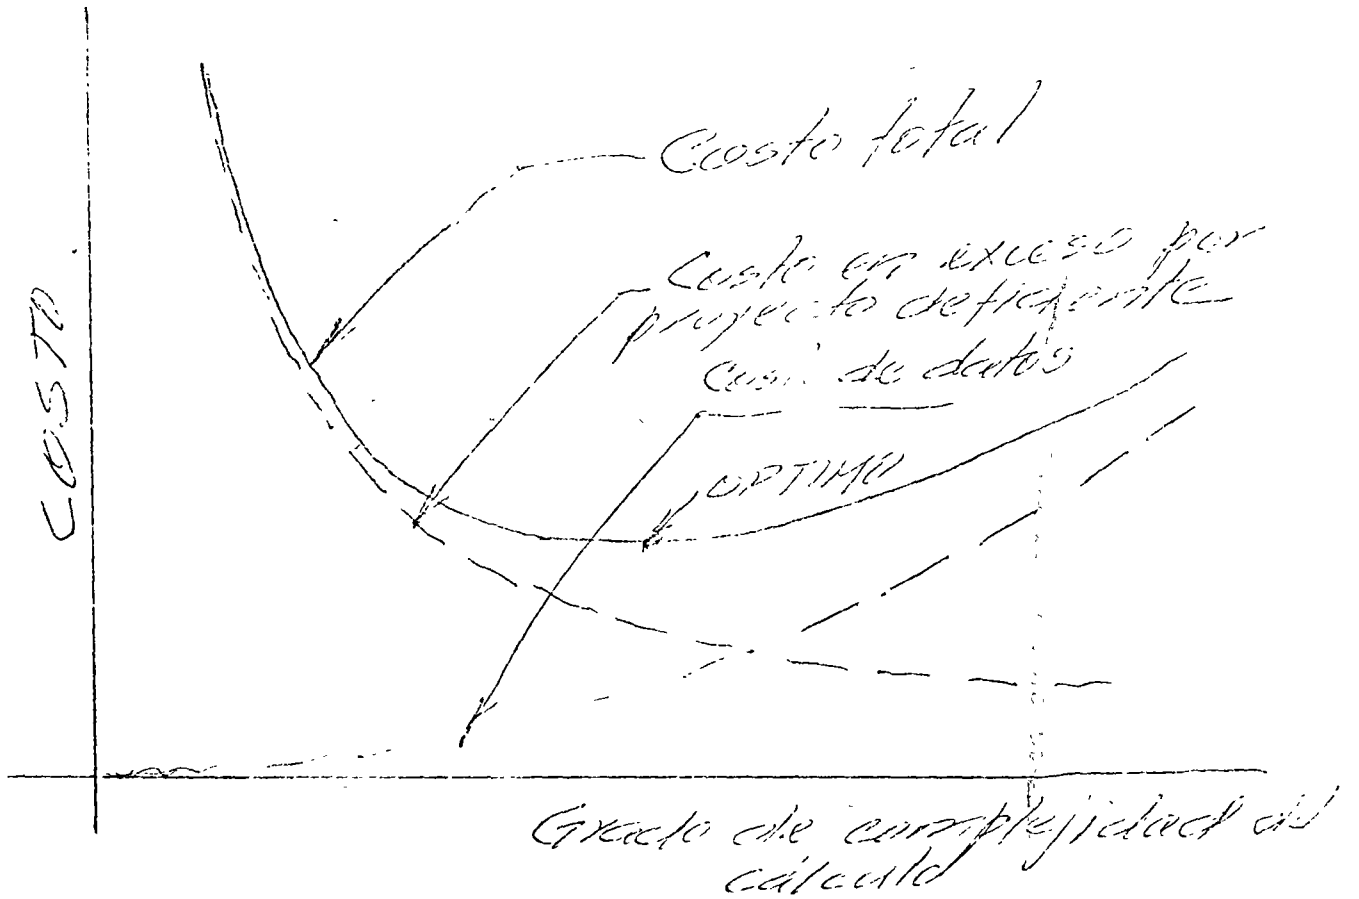 Costo total
Costo en exceso por
proyecto deficiente
de datos
OPTIMO
COSTO
Grado de complejidad del
cálculo